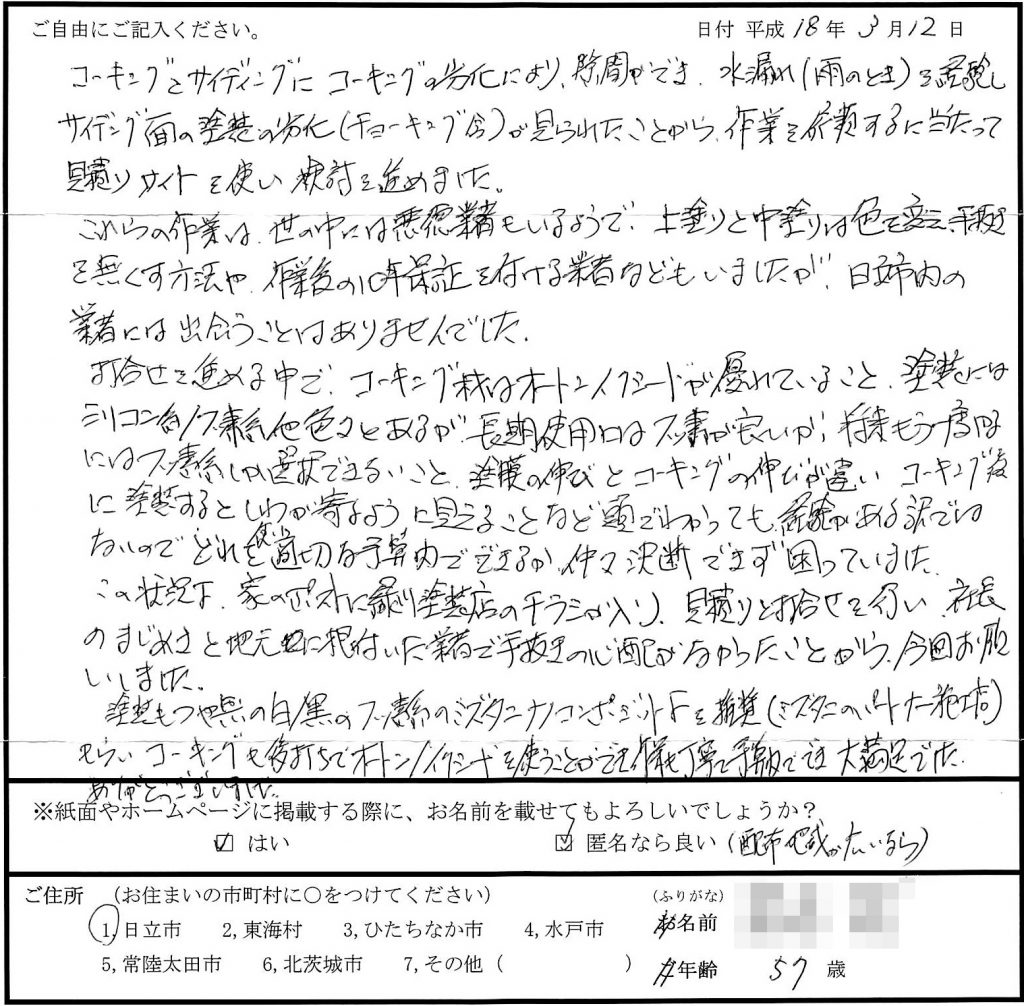 ご自由にご記入ください。 日付 平成 18 年 3 月 12 日
コーキングとサイディングに コーキングの劣化により、隙間ができ、水漏れ(雨のとき)を経験し
サイデング面の塗装の劣化(チョーキング含)が見られたことから、作業を依頼するに当たって
見積りサイトを使い検討を進めました。
これらの作業は、世の中には悪徳業者もいるようで、上塗りと中塗りは色を変え、手抜
を無くす方法や、作業後の10年保証を付ける業者などもいましたが、日立市内の
業者には出合うことはありませんでした。
打合せを進める中で、コーキング材はオートンイクシードが優れていること、塗装には
シリコン系/フッ素系他色々とあるが、長期使用にはフッ素が良いが、将来もう一度塗る
にはフッ素系しか選択できないこと、塗膜の伸びとコーキングの伸びが違い コーキング後
に塗装するとしわが寄るように見えることなど頭でわかっても、経験がある訳では
ないので どれを使い適切な予算内でできるか、仲々決断できず困っていました。
この状況下、家のポストに 塗装店のチラシが入り、見積りと打合せを行い、社長
のまじめさと地元に根付いた業者で手抜きの心配がなかったことから、今回お願
いしました。
塗装もつや無の白黒のフッ素系のミズタニナノコンポジットFを推奨(ミズタニのパートナー施工店)
もらい コーキングも後打ちでオートンイクシードを使うことができ、作業も丁寧で 大満足でした。
ありがとうございました。
※紙面やホームページに掲載する際に、お名前を載せてもよろしいでしょうか?
☑ はい ☑ 匿名なら良い (配布地域が広いなら)
ご住所 (お住まいの市町村に○をつけてください) (ふりがな)
1,日立市 2,東海村 3,ひたちなか市 4,水戸市 お名前
5,常陸太田市 6,北茨城市 7,その他 ( ) 年齢 57 歳